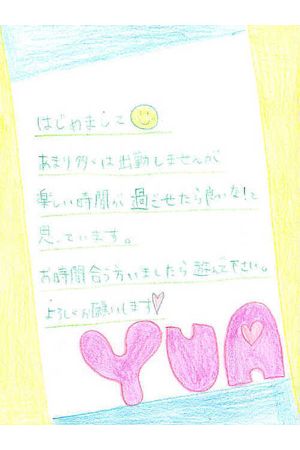 はじめまして
あまり多くは出勤しませんが
楽しい時間が過ごせたら良いな!と
思っています。
お時間合う方いましたら遊んで下さい。
よろしくお願いします
YUA